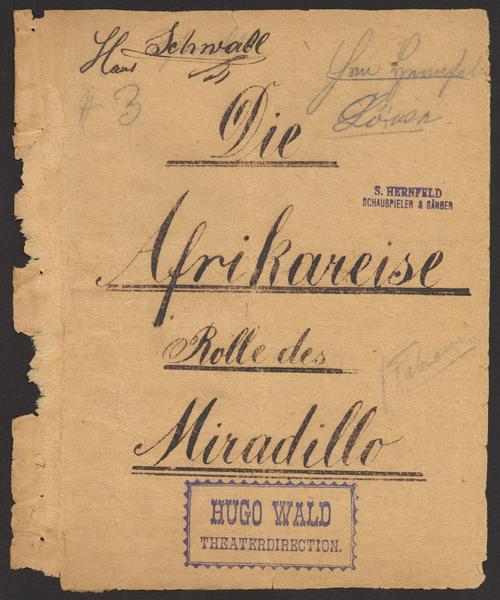 Hans Schwall
# 3
Die
S. HERNFELD
SCHAUSPIELER & SÄNGER
Afrikareise
Rolle des
Fabian
Miradillo
HUGO WALD
THEATERDIRECTION.